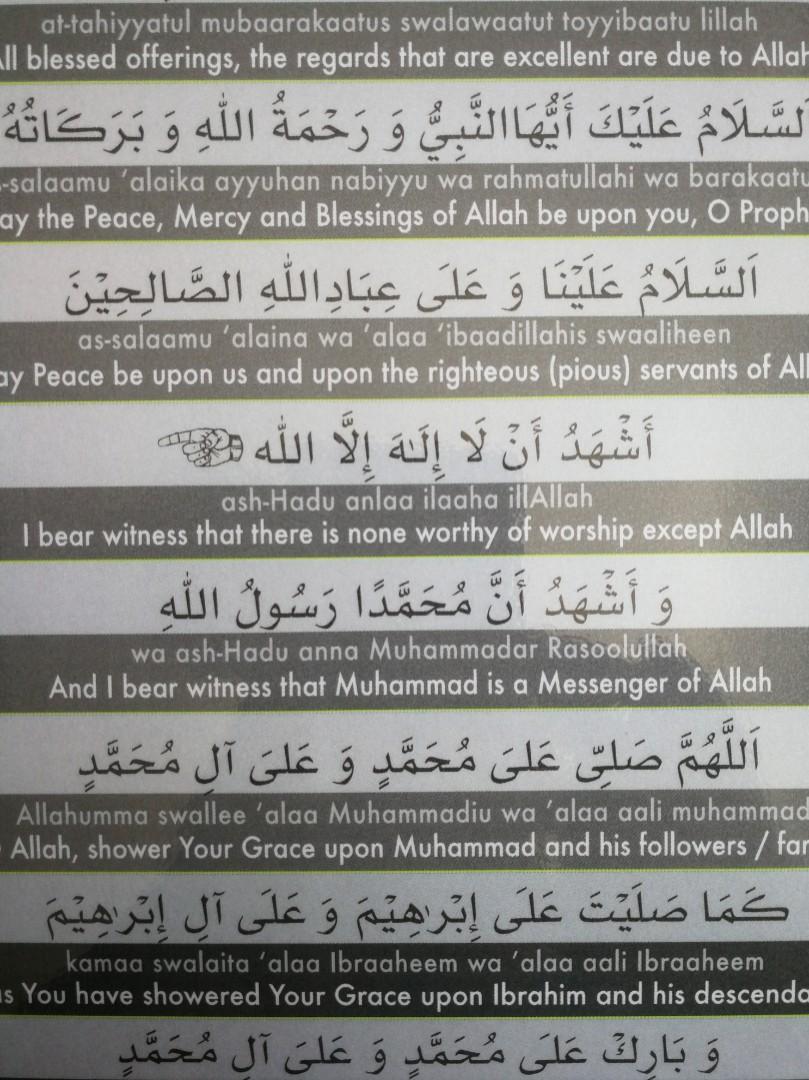 at-tahiyyatul mubaarakaatus swalawaatut toyyibaatu lillah
ll blessed offerings, the regards that are excellent are due to Allah
لسَّلَامُ عَلَيْكَ أَيُّهَاالنَّبِيُّ وَ رَحْمَةُ اللّٰهِ وَ بَرَكَاتُهُ
-salaamu ‘alaika ayyuhan nabiyyu wa rahmatullahi wa barakaatu
ay the Peace, Mercy and Blessings of Allah be upon you, O Proph
اَلسَّلَامُ عَلَيْنَا وَ عَلَى عِبَادِاللّٰهِ الصَّالِحِيْنَ
as-salaamu ‘alaina wa ‘alaa ‘ibaadillahis swaaliheen
ay Peace be upon us and upon the righteous (pious) servants of All
أَشْهَدُ أَنْ لَا إِلَـٰهَ إِلَّا اللّٰه
ash-Hadu anlaa ilaaha illAllah
I bear witness that there is none worthy of worship except Allah
وَ أَشْهَدُ أَنَّ مُحَمَّدًا رَسُولُ اللّٰهِ
wa ash-Hadu anna Muhammadar Rasoolullah
And I bear witness that Muhammad is a Messenger of Allah
اَللّٰهُمَّ صَلِّى عَلىَ مُحَمَّدٍ وَ عَلىَ آلِ مُحَمَّدٍ
Allahumma swallee ‘alaa Muhammadiu wa ‘alaa aali muhammad
Allah, shower Your Grace upon Muhammad and his followers / far
كَمَا صَلَيْتَ عَلَى إِبْرٰهِيْمَ وَ عَلَى آلِ إِبْرٰهِيْمَ
kamaa swalaita ‘alaa Ibraaheem wa ‘alaa aali Ibraaheem
s You have showered Your Grace upon Ibrahim and his descenda
وَ بَارِكْ عَلىَ مُحَمَّدٍ وَ عَلىَ آلِ مُحَمَّدٍ